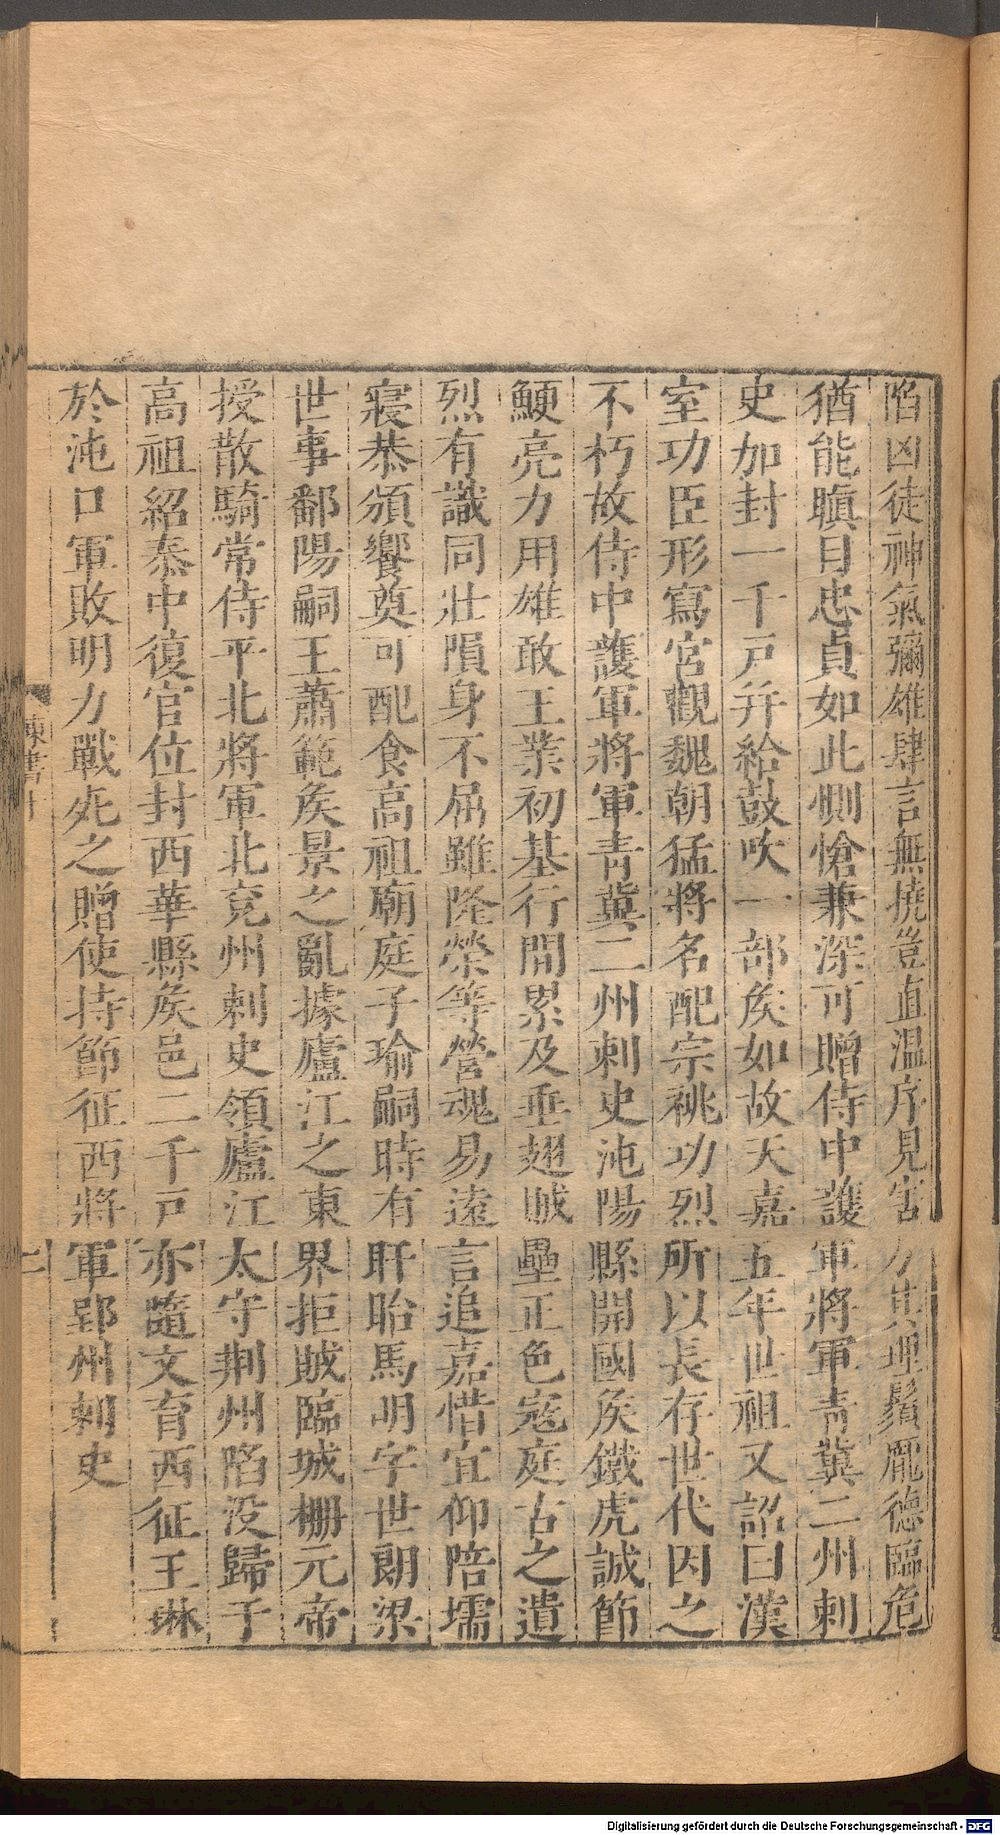 陷凶徒神氣彌雄肆言無撓豈直温序見害方其理鬚龎德臨危
猶能瞋目忠貞如此惻愴兼深可贈侍中護軍將軍青冀二州刺
史加封一千戸并給鼓吹一部矦如故天嘉五年世祖又詔曰漢
室功臣形寫宮觀魏朝猛將名配宗祧功烈所以長存世代因之
不朽故侍中護軍將軍青冀二州刺史沌陽縣開國矦鐵虎誠節
鯁亮力用雄敢王業初基行間累及垂翅賊壘正色寇庭古之遺
烈有識同壯隕身不屈雖隆榮等營魂易遠言追嘉惜宜仰陪壖
寝恭頒饗奠可配食高祖廟庭子瑜嗣時有盱眙馬明字世朗梁
世事鄱陽嗣王蕭範矦景之亂據廬江之東界拒賊臨城栅元帝
授散騎常侍平北將軍北兖州刺史領廬江太守荆州陷没歸于
高祖紹泰中復官位封西華縣矦邑二千戸亦隨文育西征王琳
於沌口軍敗明力戰死之贈使持節征西將軍郢州刺史
陳書十
二
Digitalisierung gefördert durch die Deutsche Forschungsgemeinschaft - DFG